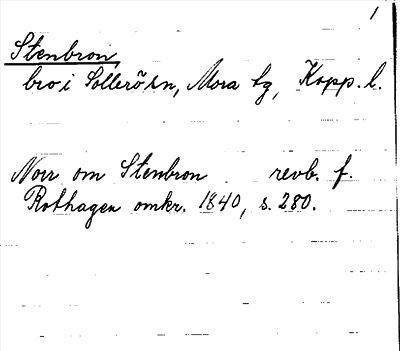 1
Stenbron,
bro i Sollerö sn, Mora tg, Kopp. l.
Norr om Stenbron revb. f.
Rothagen omkr. 1840, s. 280.